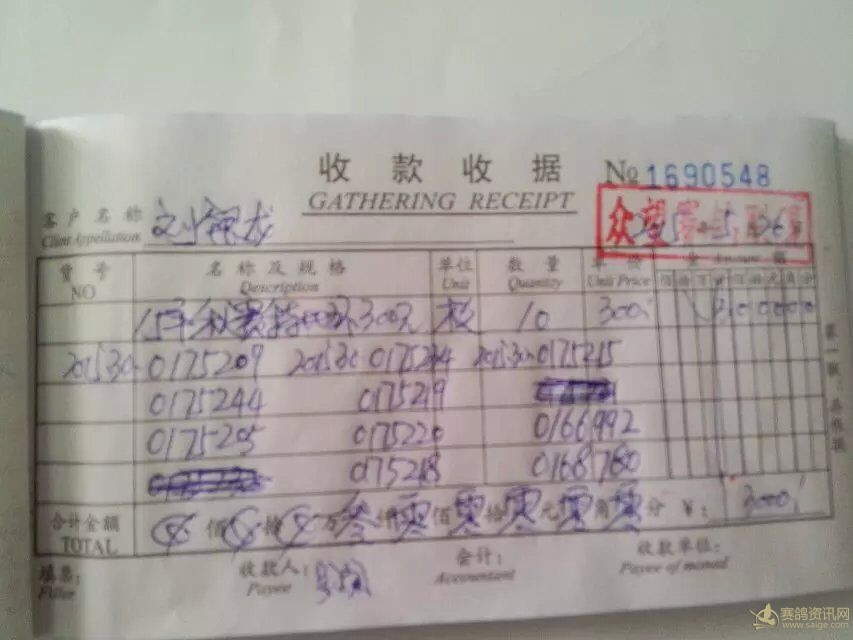 收 款 收 据 No 1690548
GATHERING RECEIPT
客户名称
Client Appellation
众望
货号 名称及规格 单位 数量 单价 金 Amount 额
NO Description Unit Quantity Unit Price 百 拾 万 仟 佰 拾 元 角 分
15年秋赛特比环300元 枚 10 300
201530 0175209 201530 0175214 201530 0175215
0175244 0175219
0175205 0175220 0166992
0175218 0168780
合计金额 佰 拾 万 叁 仟 零 佰 零 拾 零 元 零 角 零 分 ¥: 3000
TOTAL
填票: 收款人: 会计: 收款单位:
Filler Payee Accountant Payee of moned
赛鸽资讯网
www.saige.com